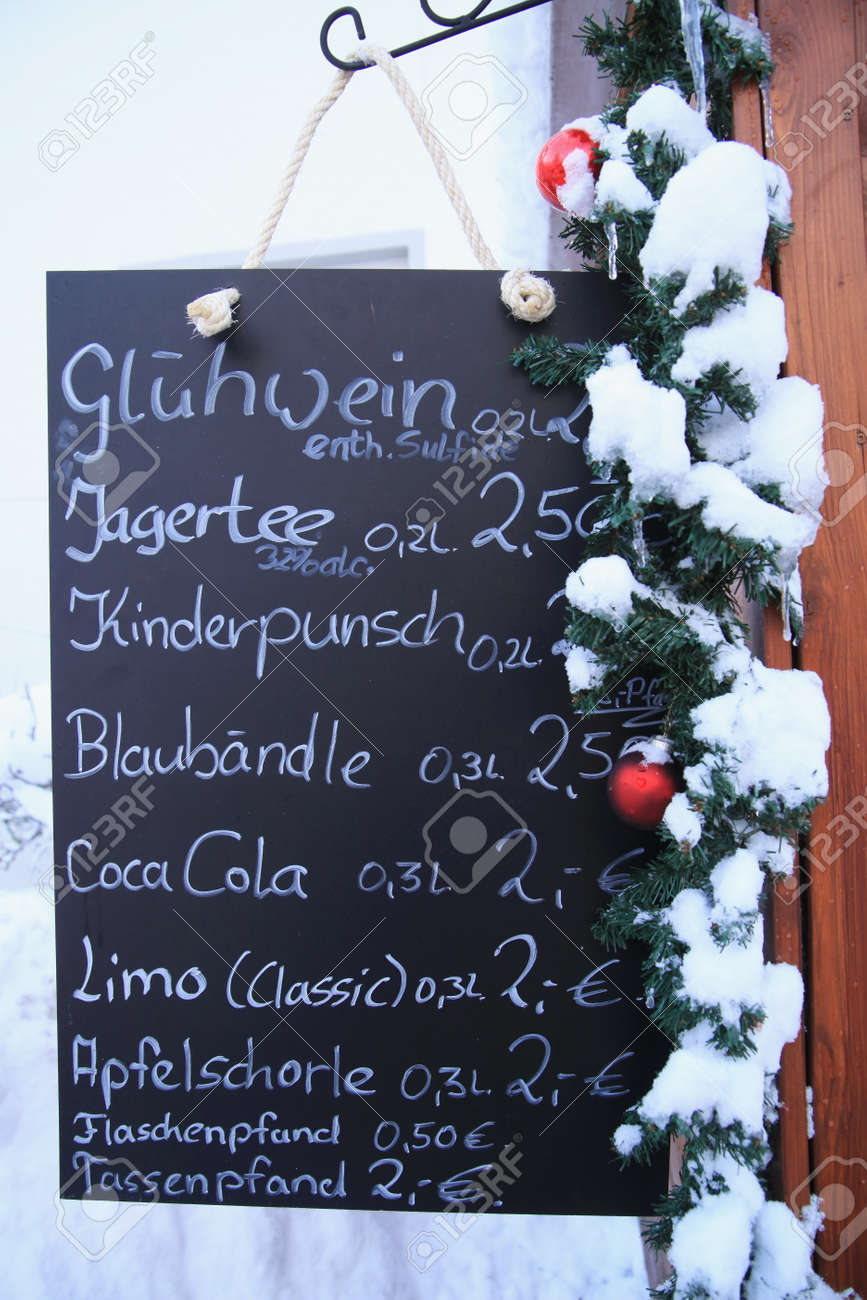 Glühwein 0,2L. 2
enth. Sulfide
Jagertee 0,2L. 2,50
32% alc.
Kinderpunsch 0,2L.
Blaubändle 0,3L. 2,50
Coca Cola 0,3L. 2,- €
Limo (Classic) 0,3L. 2,- €
Apfelschorle 0,3L. 2,- €
Flaschenpfand 0,50 €
Tassenpfand 2,- €.
123RF